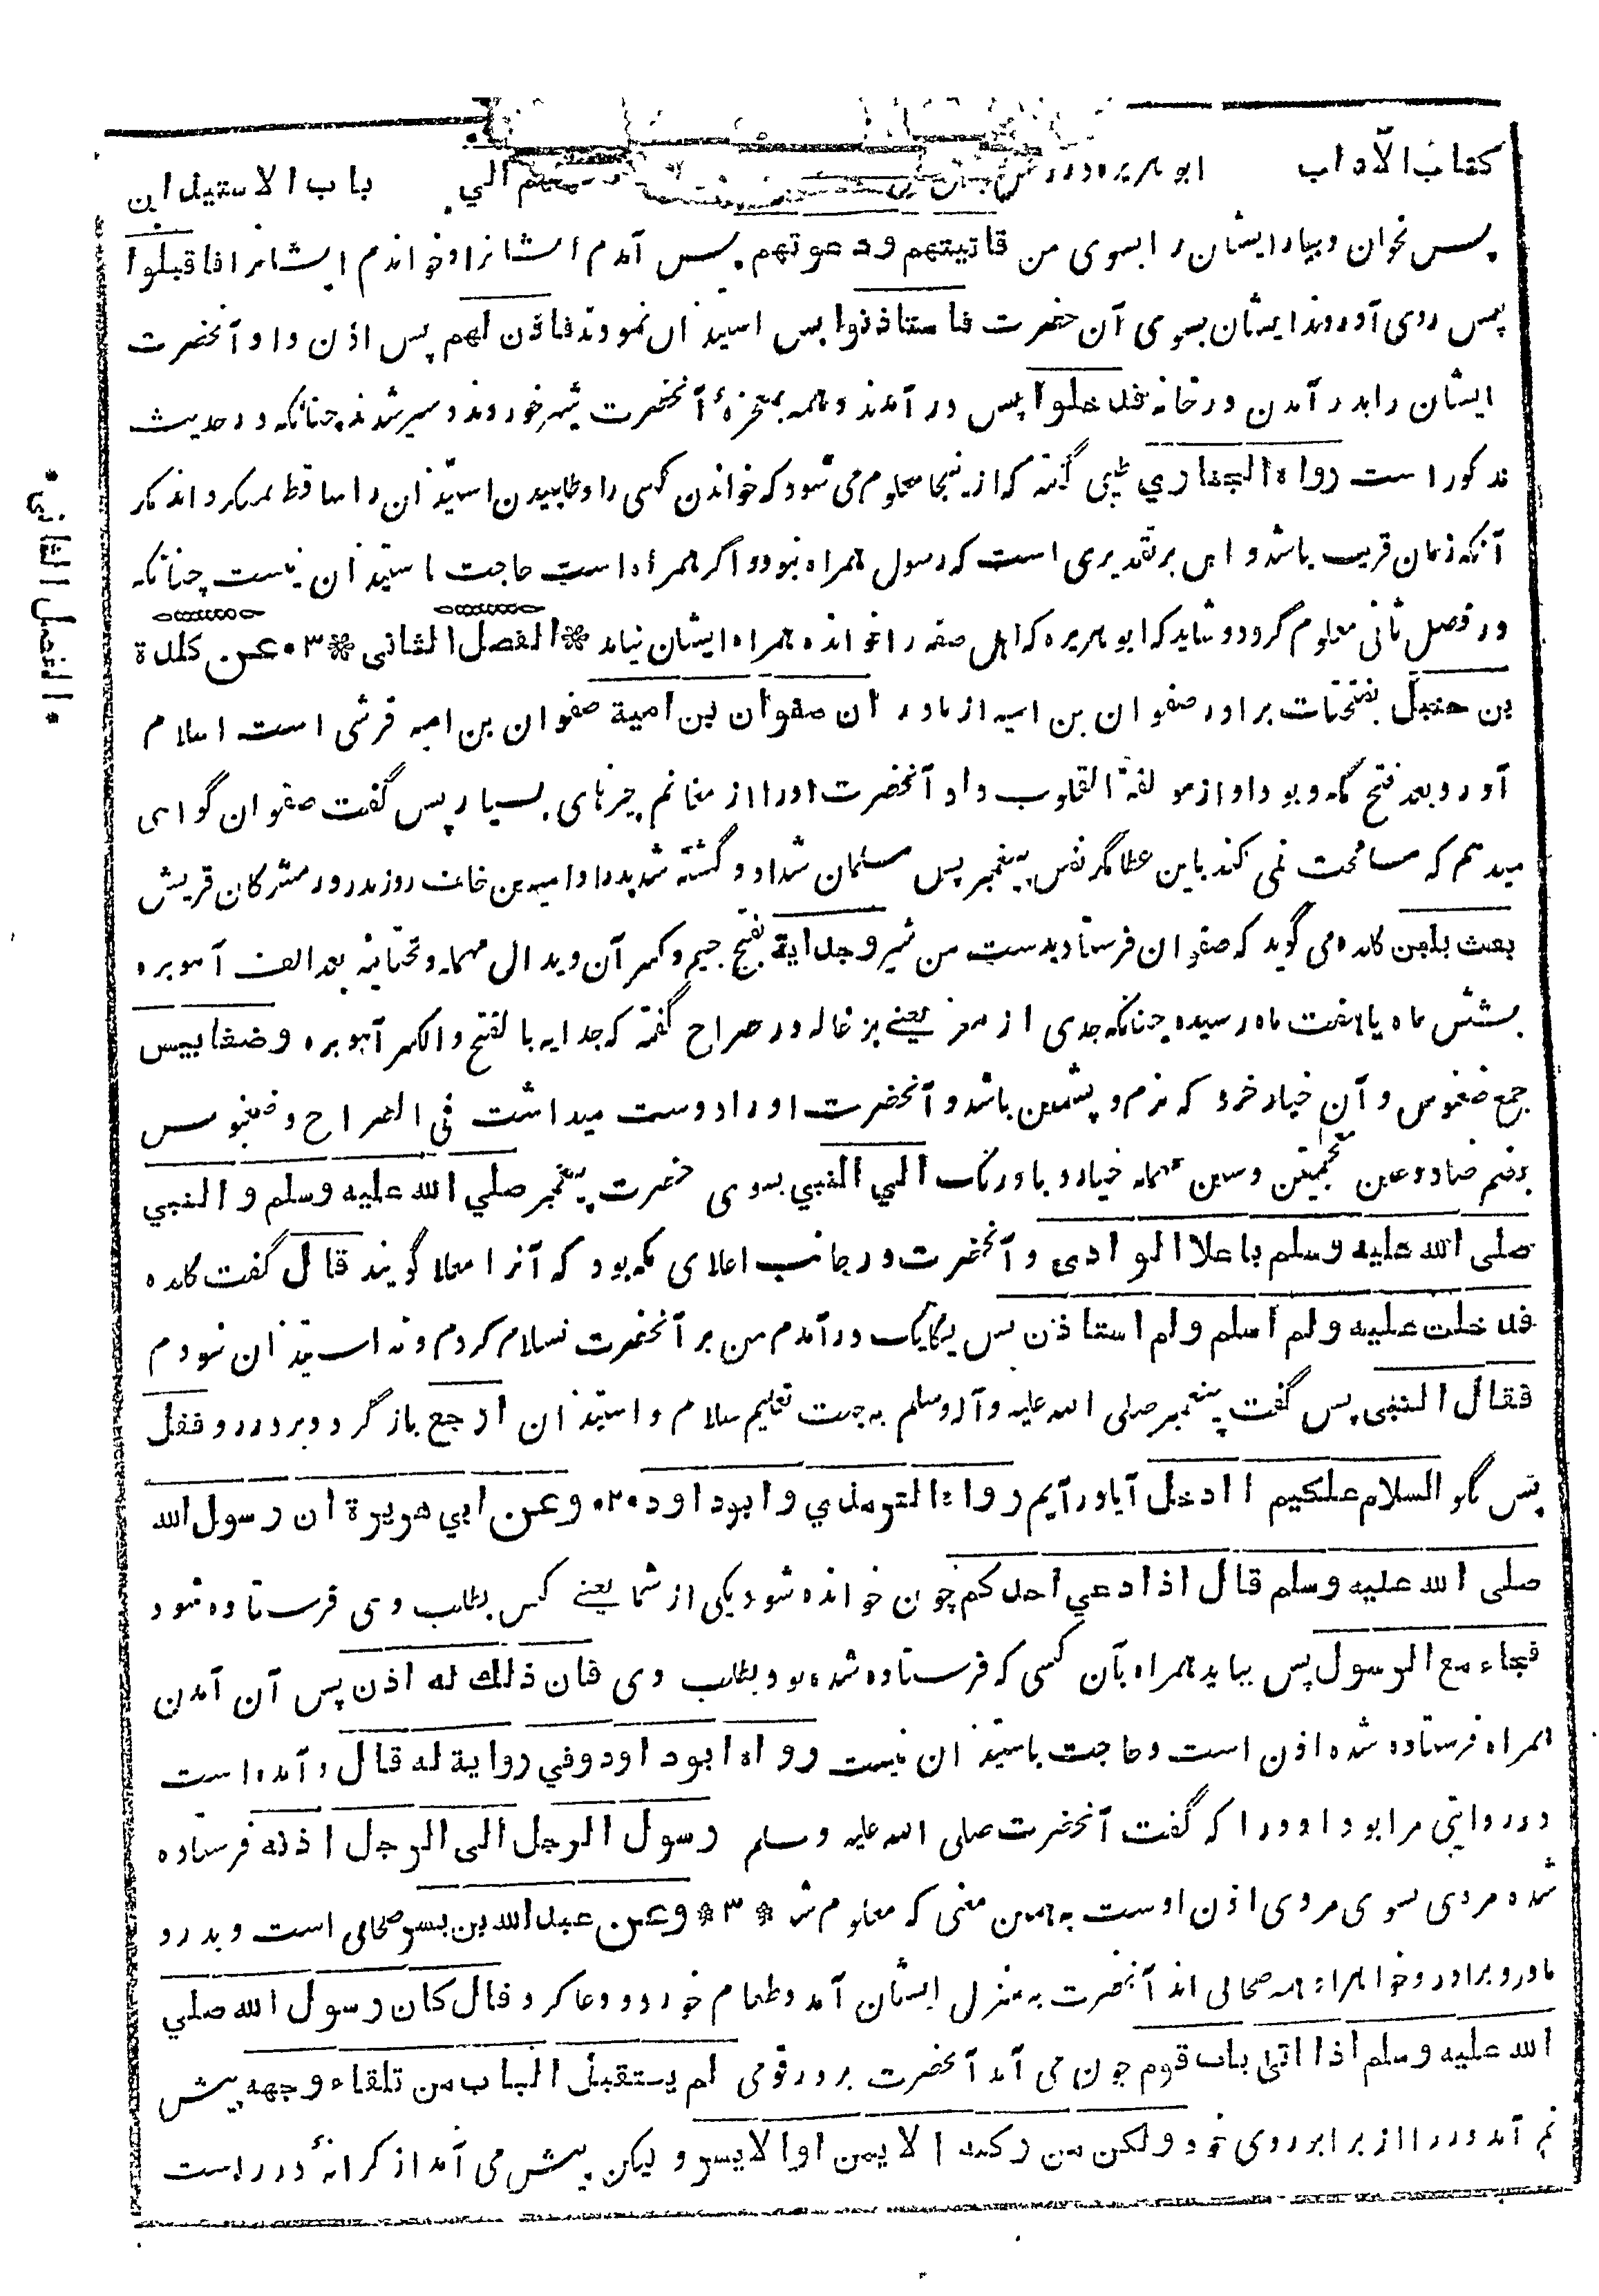 كتاب الآداب ابو هريره در فهم الي باب الاستيذان
پس بخوان و بيار ايشان را بسوي من فاتيتهم ودعوتهم پس آمدم ايشانرا و خواندم ايشانرا فاقبلوا
پس روي آوردند ايشان بسوي آن حضرت فاستاذنوا پس استيذان نمودند فاذن لهم پس اذن داد آنحضرت
ايشان را بدر آمدن در خانه فدخلوا پس در آمدند و همه بمعجزۀ آنحضرت شير خوردند و سير شدند چنانكه در حديث
مذكور است رواه البخاري طيبي گفته كه از ينجا معلوم مي شود كه خواندن كسي را و طلبيدن استيذان را ساقط نميگرداند مگر
آنكه زمان قريب باشد و اين بر تقديري است كه رسول همراه نبود و اگر همراه است حاجت استيذان نيست چنانكه
در فصل ثاني معلوم گردد و شايد كه ابو هريره كه اهل صفه را خوانده همراه ايشان نيامد * الفصل الثاني * ٠٣ عن كلدة
بن حنبل بفتحات برادر صفوان بن اميه از مادر ان صفوان بن امية صفوان بن اميه قرشي است اسلام
آورد بعد فتح مكه و بود او از مولفة القلوب داد آنحضرت او را از مغانم چيزهاي بسيار پس گفت صفوان گواهي
ميدهم كه مسامحت نمي كند باين عطا مگر نفس پيغمبر پس مسلمان شد او و كشته شد پدر او اميه بن خلف روز بدر در مشركان قريش
بعث بلبن كلده مي گويد كه صفوان فرستاد بدست من شير وجداية بفتح جيم و كسر آن و بدال مهمله و تحتانيه بعد الف آهو بره
بشش ماه يا هفت ماه رسيده چنانكه جدي از معز يعني بزغاله در صراح گفته كه جدايه بالفتح والكسر آهو بره وضغابيس
جمع ضغبوس و آن خيار خرد كه نرم و پشمين باشد و آنحضرت او را دوست ميداشت في الصراح وضغبوس
بضم ضاد و غين معجمتين و سين مهمله خيار و بادرنگ الي النبي بسوي حضرت پيغمبر صلي الله عليه وسلم والنبي
صلى الله عليه وسلم باعلا الوادي و آنحضرت در جانب اعلاي مكه بود كه آنرا معلا گويند قال گفت كلده
فدخلت عليه ولم اسلم ولم استاذن پس يكايك در آمدم من بر آنحضرت نه سلام كردم و نه استيذان نمودم
فقال النبي پس گفت پيغمبر صلى الله عليه وآله وسلم به جهت تعليم سلام و استيذان ارجع باز گرد و بر در رو فقل
پس بگو السلام عليكم اادخل آيا در آيم رواه الترمذي وابوداود ٠٢٠ وعن ابي هريرة ان رسول الله
صلى الله عليه وسلم قال اذا دعي احدكم چون خوانده شود يكي از شما يعني كس بطلب وي فرستاده شود
فجاء مع الرسول پس بيايد همراه بآن كسي كه فرستاده شده بود بطلب وي فان ذلك له اذن پس آن آمدن
همراه فرستاده شده اذن است و حاجت باستيذان نيست رواه ابوداود وفي رواية له قال و آمده است
در روايتي مر ابوداود را كه گفت آنحضرت صلى الله عليه وسلم رسول الرجل الى الرجل اذنه فرستاده
شده مردي بسوي مردي اذن اوست به همين معني كه معلوم شد * ٣ * وعن عبدالله بن بسر صحابي است و پدر و
مادر و برادر و خواهر او همه صحابي اند آنحضرت به منزل ايشان آمد و طعام خورد و دعا كرد قال كان رسول الله صلي
الله عليه وسلم اذا اتى باب قوم چون مي آمد آنحضرت بر در قومي لم يستقبل الباب من تلقاء وجهه پيش
نمي آمد در را از برابر روي خود ولكن من ركنه الايمن اوالايسر و ليكن پيش مي آمد از كرانۀ در راست
* الفصل الثاني *